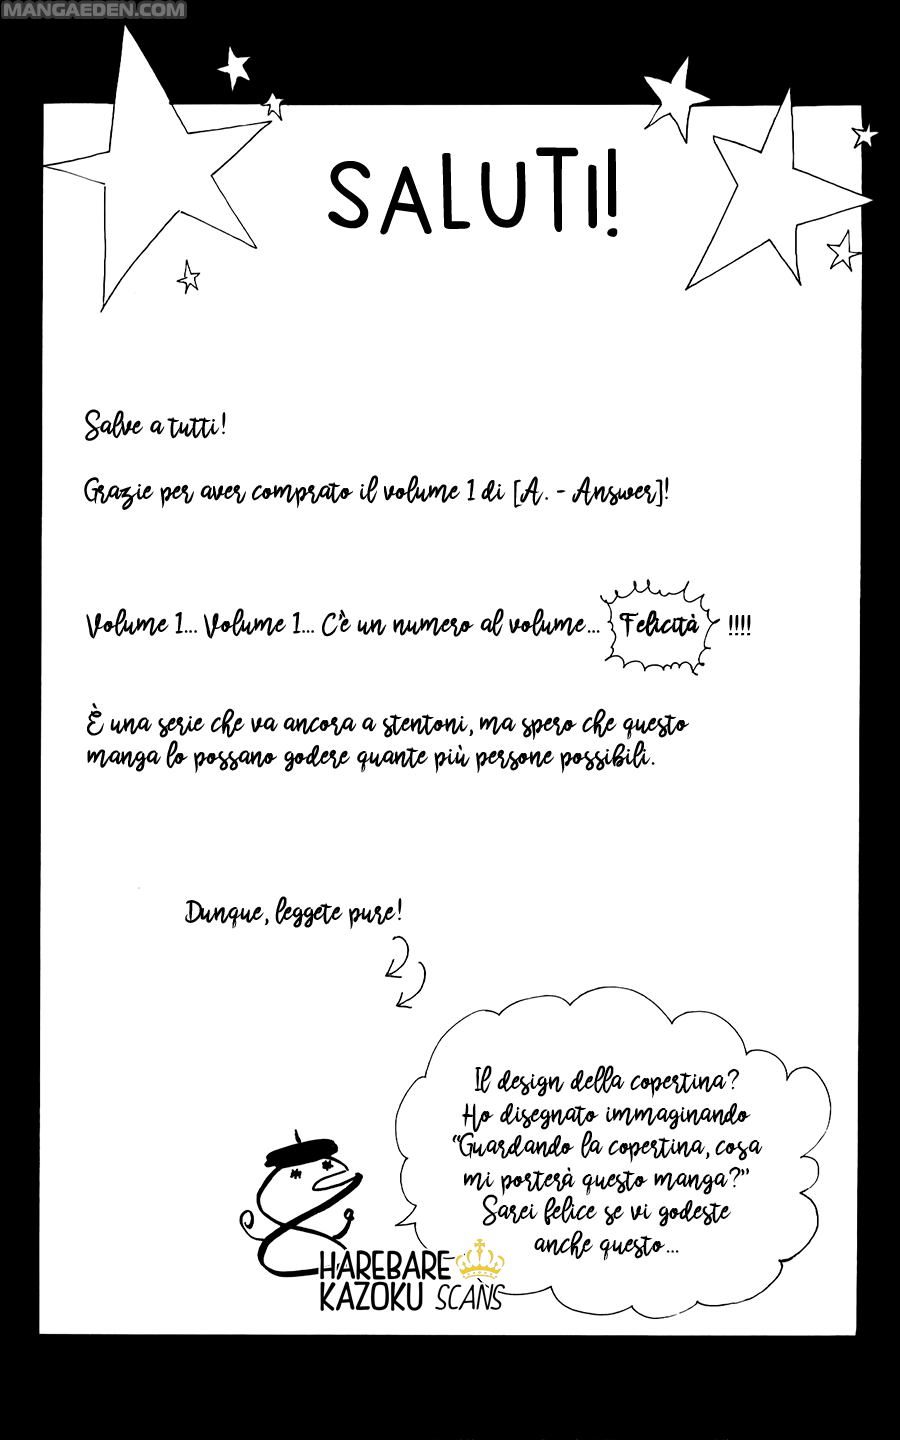 MANGAEDEN.COM
SALUTI!
Salve a tutti!
Grazie per aver comprato il volume 1 di [A. - Answer]!
Volume 1... Volume 1... C'è un numero al volume... Felicità !!!!
È una serie che va ancora a stentoni, ma spero che questo
manga lo possano godere quante più persone possibili.
Dunque, leggete pure!
Il design della copertina?
Ho disegnato immaginando
"Guardando la copertina, cosa
mi porterà questo manga?"
Sarei felice se vi godeste
anche questo...
HAREBARE
KAZOKU SCANS